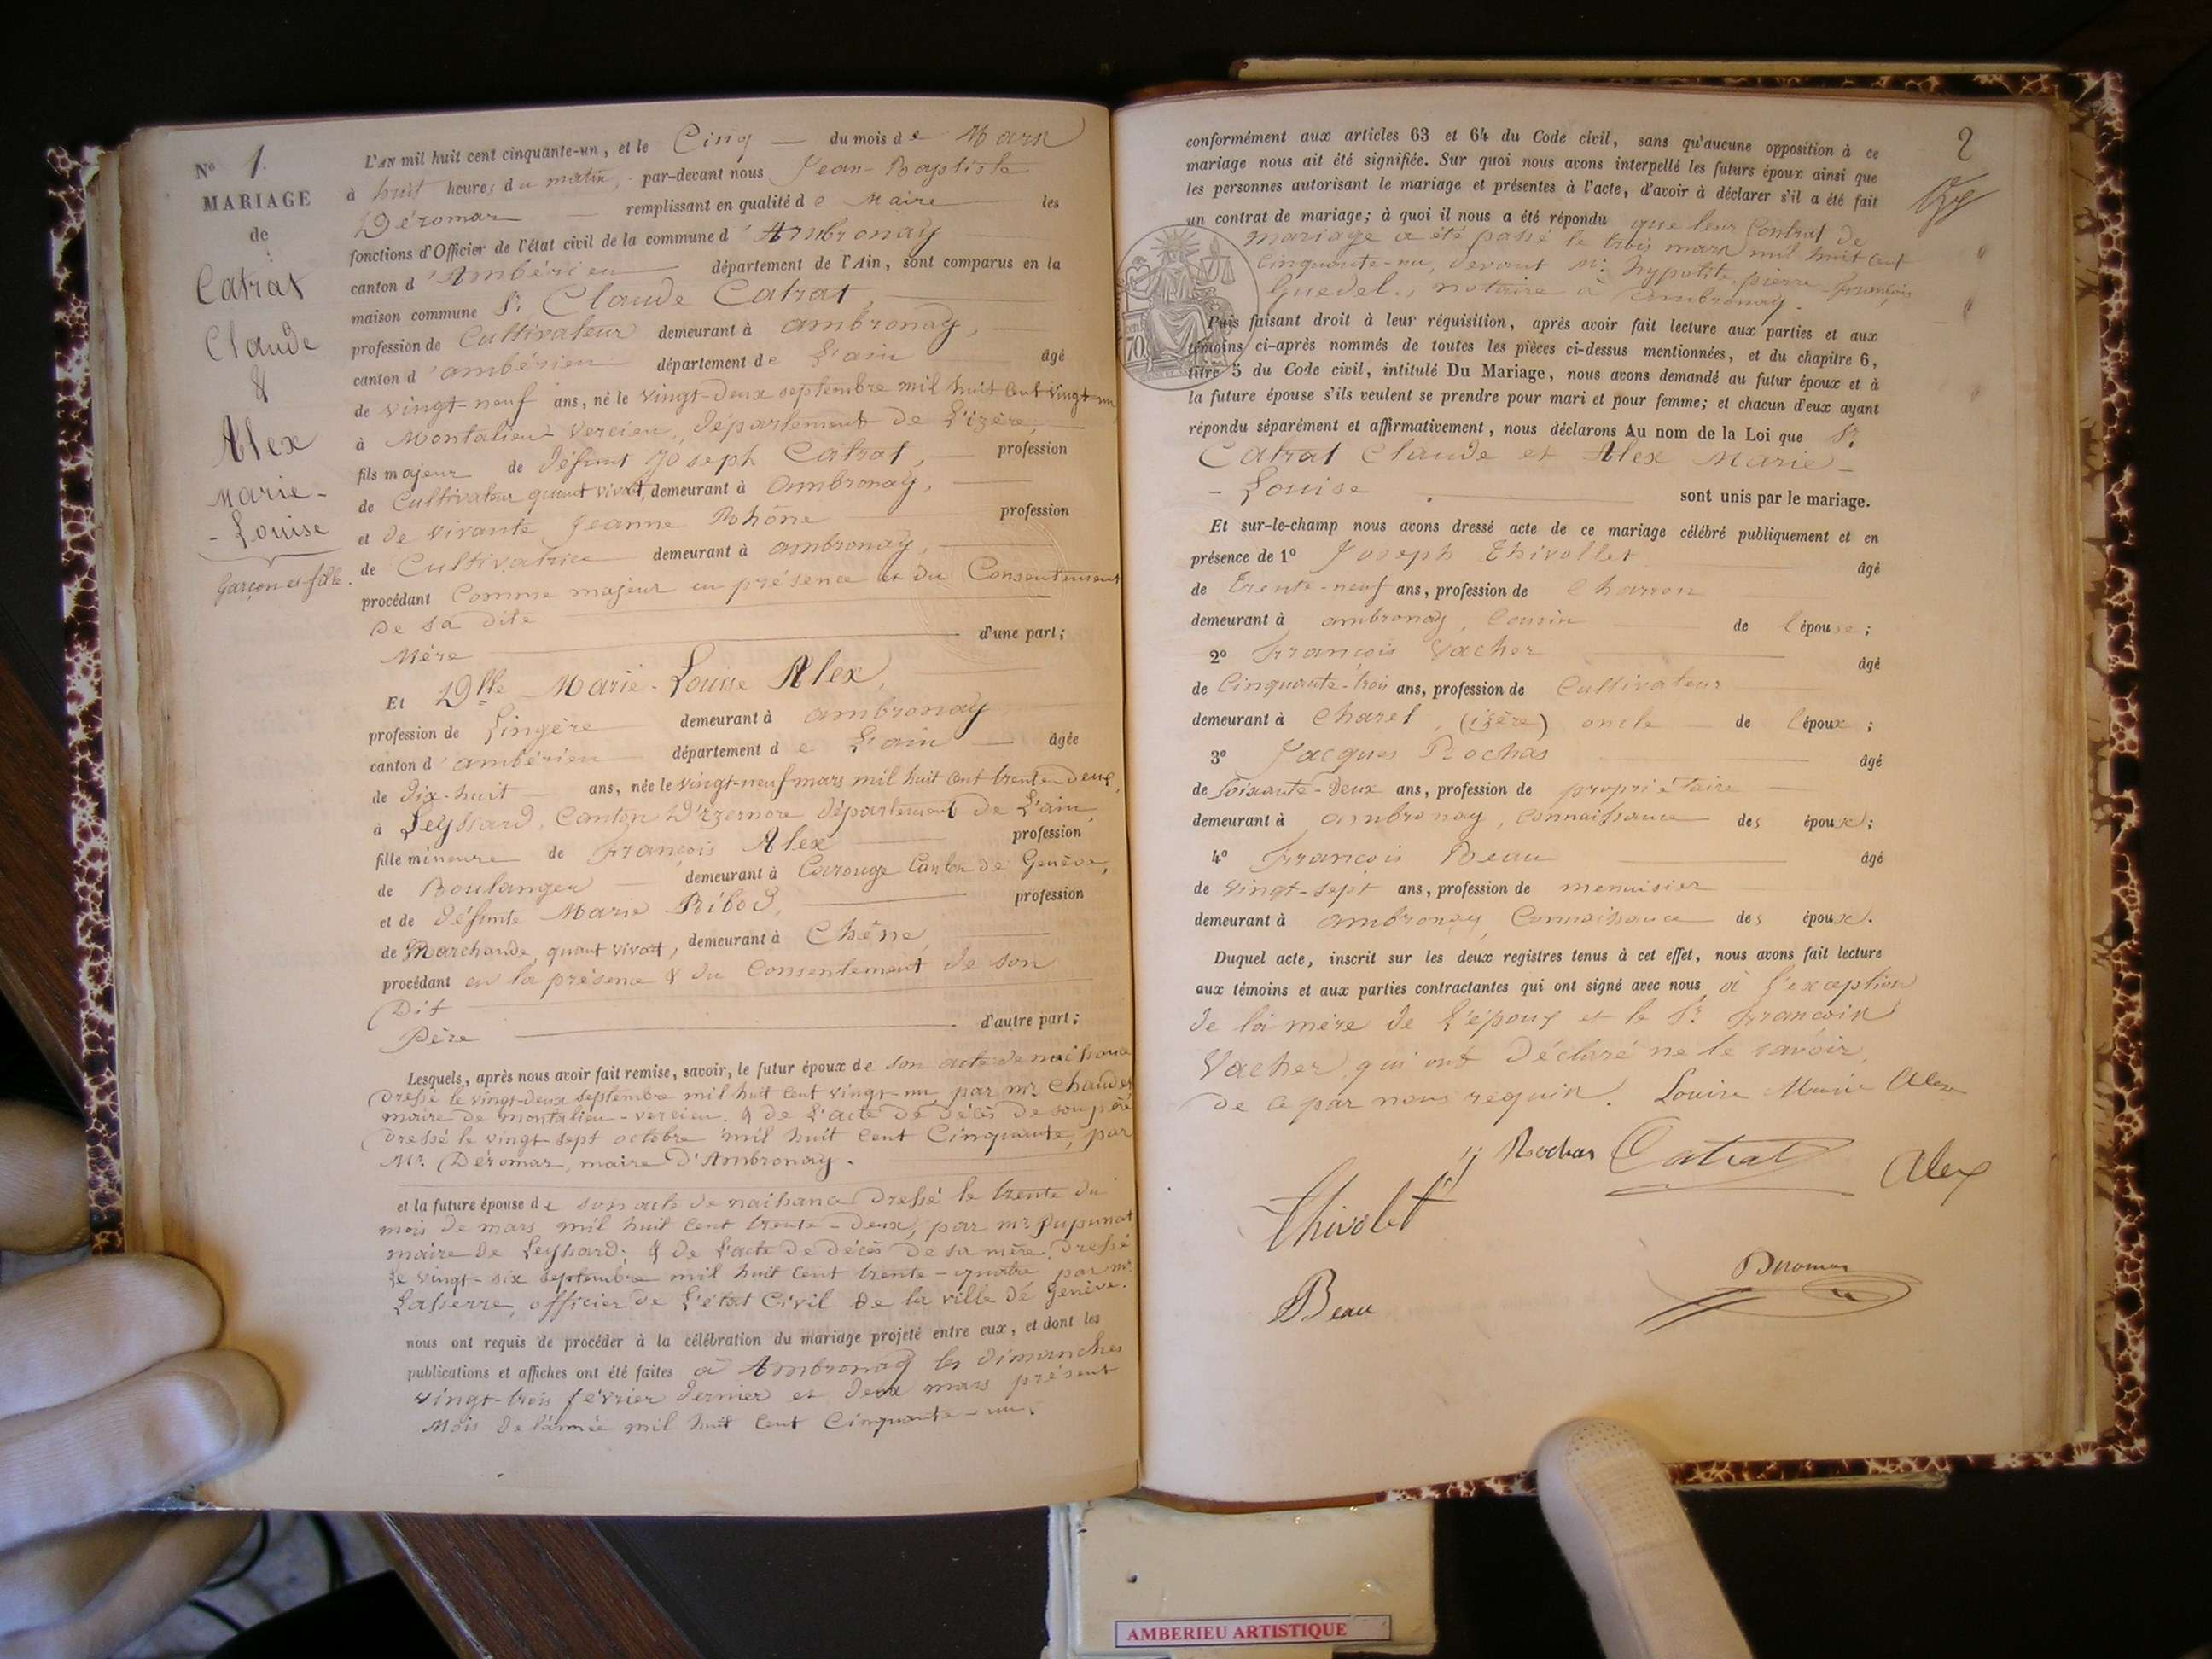 N° 1.
MARIAGE
de
Catrat
Claude
&
Alex
Marie-
-Louise
garçon et fille.
L'AN mil huit cent cinquante-un, et le Cinq du mois de Mars
à huit heures du matin, par-devant nous Jean-Baptiste
Déromas remplissant en qualité de Maire les
fonctions d'Officier de l'état civil de la commune d'Ambronay
canton d'Ambérieu département de l'Ain, sont comparus en la
maison commune Sr Claude Catrat,
profession de Cultivateur demeurant à ambronay,
canton d'ambérieu département de L'ain âgé
de vingt-neuf ans, né le vingt-deux septembre mil huit cent vingt-un
à Montalieu-Vercieu, département de L'izère,
fils majeur de défunt Joseph Catrat, profession
de Cultivateur quant vivat, demeurant à Ambronay,
et de vivante Jeanne Rhône profession
de Cultivatrice demeurant à ambronay,
procédant Comme majeur en présence et du Consentement
de sa dite
Mère d'une part;
Et Dlle Marie-Louise Alex,
profession de Lingère demeurant à ambronay
canton d'ambérieu département de L'ain âgée
de dix-huit ans, née le vingt-neuf mars mil huit cent trente-deux,
à Leyssard, Canton D'izernore département de L'ain,
fille mineure de François Alex profession
de Boulanger demeurant à Carouge Canton de Genève,
et de défunte Marie Ribod, profession
de Marchande, quant vivat, demeurant à Chêne,
procédant en la présence & du Consentement de son
Dit
Père d'autre part;
Lesquels, après nous avoir fait remise, savoir, le futur époux de son acte de naissance
Dressé le vingt-deux septembre mil huit cent vingt-un, par mr
maire de montalieu-vercieu. & de L'acte de décès de son père
Dressé le vingt-sept octobre mil huit cent Cinquante, par
Mr. Déromas, maire d'Ambronay.
et la future épouse de son acte de naissance Dressé le trente du
mois de mars mil huit cent trente-deux, par mr Pupunat
maire de Leyssard; & de L'acte de décès de sa mère, dressé
le vingt-six septembre mil huit cent trente-quatre par mr
Lasserre, officier de L'état Civil de la ville de Genève.
nous ont requis de procéder à la célébration du mariage projeté entre eux, et dont les
publications et affiches ont été faites à Ambronay les dimanches
vingt-trois février dernier et deux mars présent
Mois de l'année mil huit cent Cinquante-un.
2
conformément aux articles 63 et 64 du Code civil, sans qu'aucune opposition à ce
mariage nous ait été signifiée. Sur quoi nous avons interpellé les futurs époux ainsi que
les personnes autorisant le mariage et présentes à l'acte, d'avoir à déclarer s'il a été fait
un contrat de mariage; à quoi il nous a été répondu que leur Contrat de
mariage a été passé le trois mars mil huit cent
Cinquante-un, devant Mr. hypolite-pierre-françois
Guedel., notaire à ambronay.
Puis faisant droit à leur réquisition, après avoir fait lecture aux parties et aux
témoins ci-après nommés de toutes les pièces ci-dessus mentionnées, et du chapitre 6,
titre 5 du Code civil, intitulé Du Mariage, nous avons demandé au futur époux et à
la future épouse s'ils veulent se prendre pour mari et pour femme; et chacun d'eux ayant
répondu séparément et affirmativement, nous déclarons Au nom de la Loi que Sr
Catrat Claude et Alex Marie-
-Louise sont unis par le mariage.
Et sur-le-champ nous avons dressé acte de ce mariage célébré publiquement et en
présence de 1° Joseph Thivollet âgé
de trente-neuf ans, profession de Charron
demeurant à ambronay, Cousin de l'épouse;
2° François Vacher âgé
de Cinquante-trois ans, profession de Cultivateur
demeurant à Charet, (izère) oncle de l'époux;
3° Jacques Rochas âgé
de soixante-deux ans, profession de propriétaire
demeurant à ambronay, connaissance des époux;
4° François Beau âgé
de vingt-sept ans, profession de menuisier
demeurant à ambronay, Connaissance des époux.
Duquel acte, inscrit sur les deux registres tenus à cet effet, nous avons fait lecture
aux témoins et aux parties contractantes qui ont signé avec nous à L'exception
de la mère de L'époux et le Sr. François
Vacher, qui ont déclaré ne le savoir,
de ce par nous requis. Louise Marie Alex
Rochas Catrat Alex
thivolet
Beau
Déromas
70
AMBERIEU ARTISTIQUE